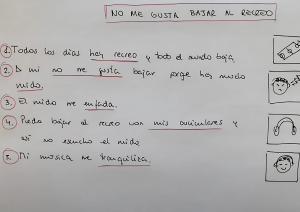 NO ME GUSTA BAJAR AL RECREO
1. Todos los dias hay recreo y todo el mundo baja
2. A mi no me gusta bajar porqe hay mucho
ruido.
3. El ruido me enfada.
4. Puedo bajar al recreo con mis auriculares y
así no escucho el ruido
5. Mi música me tranquiliza.